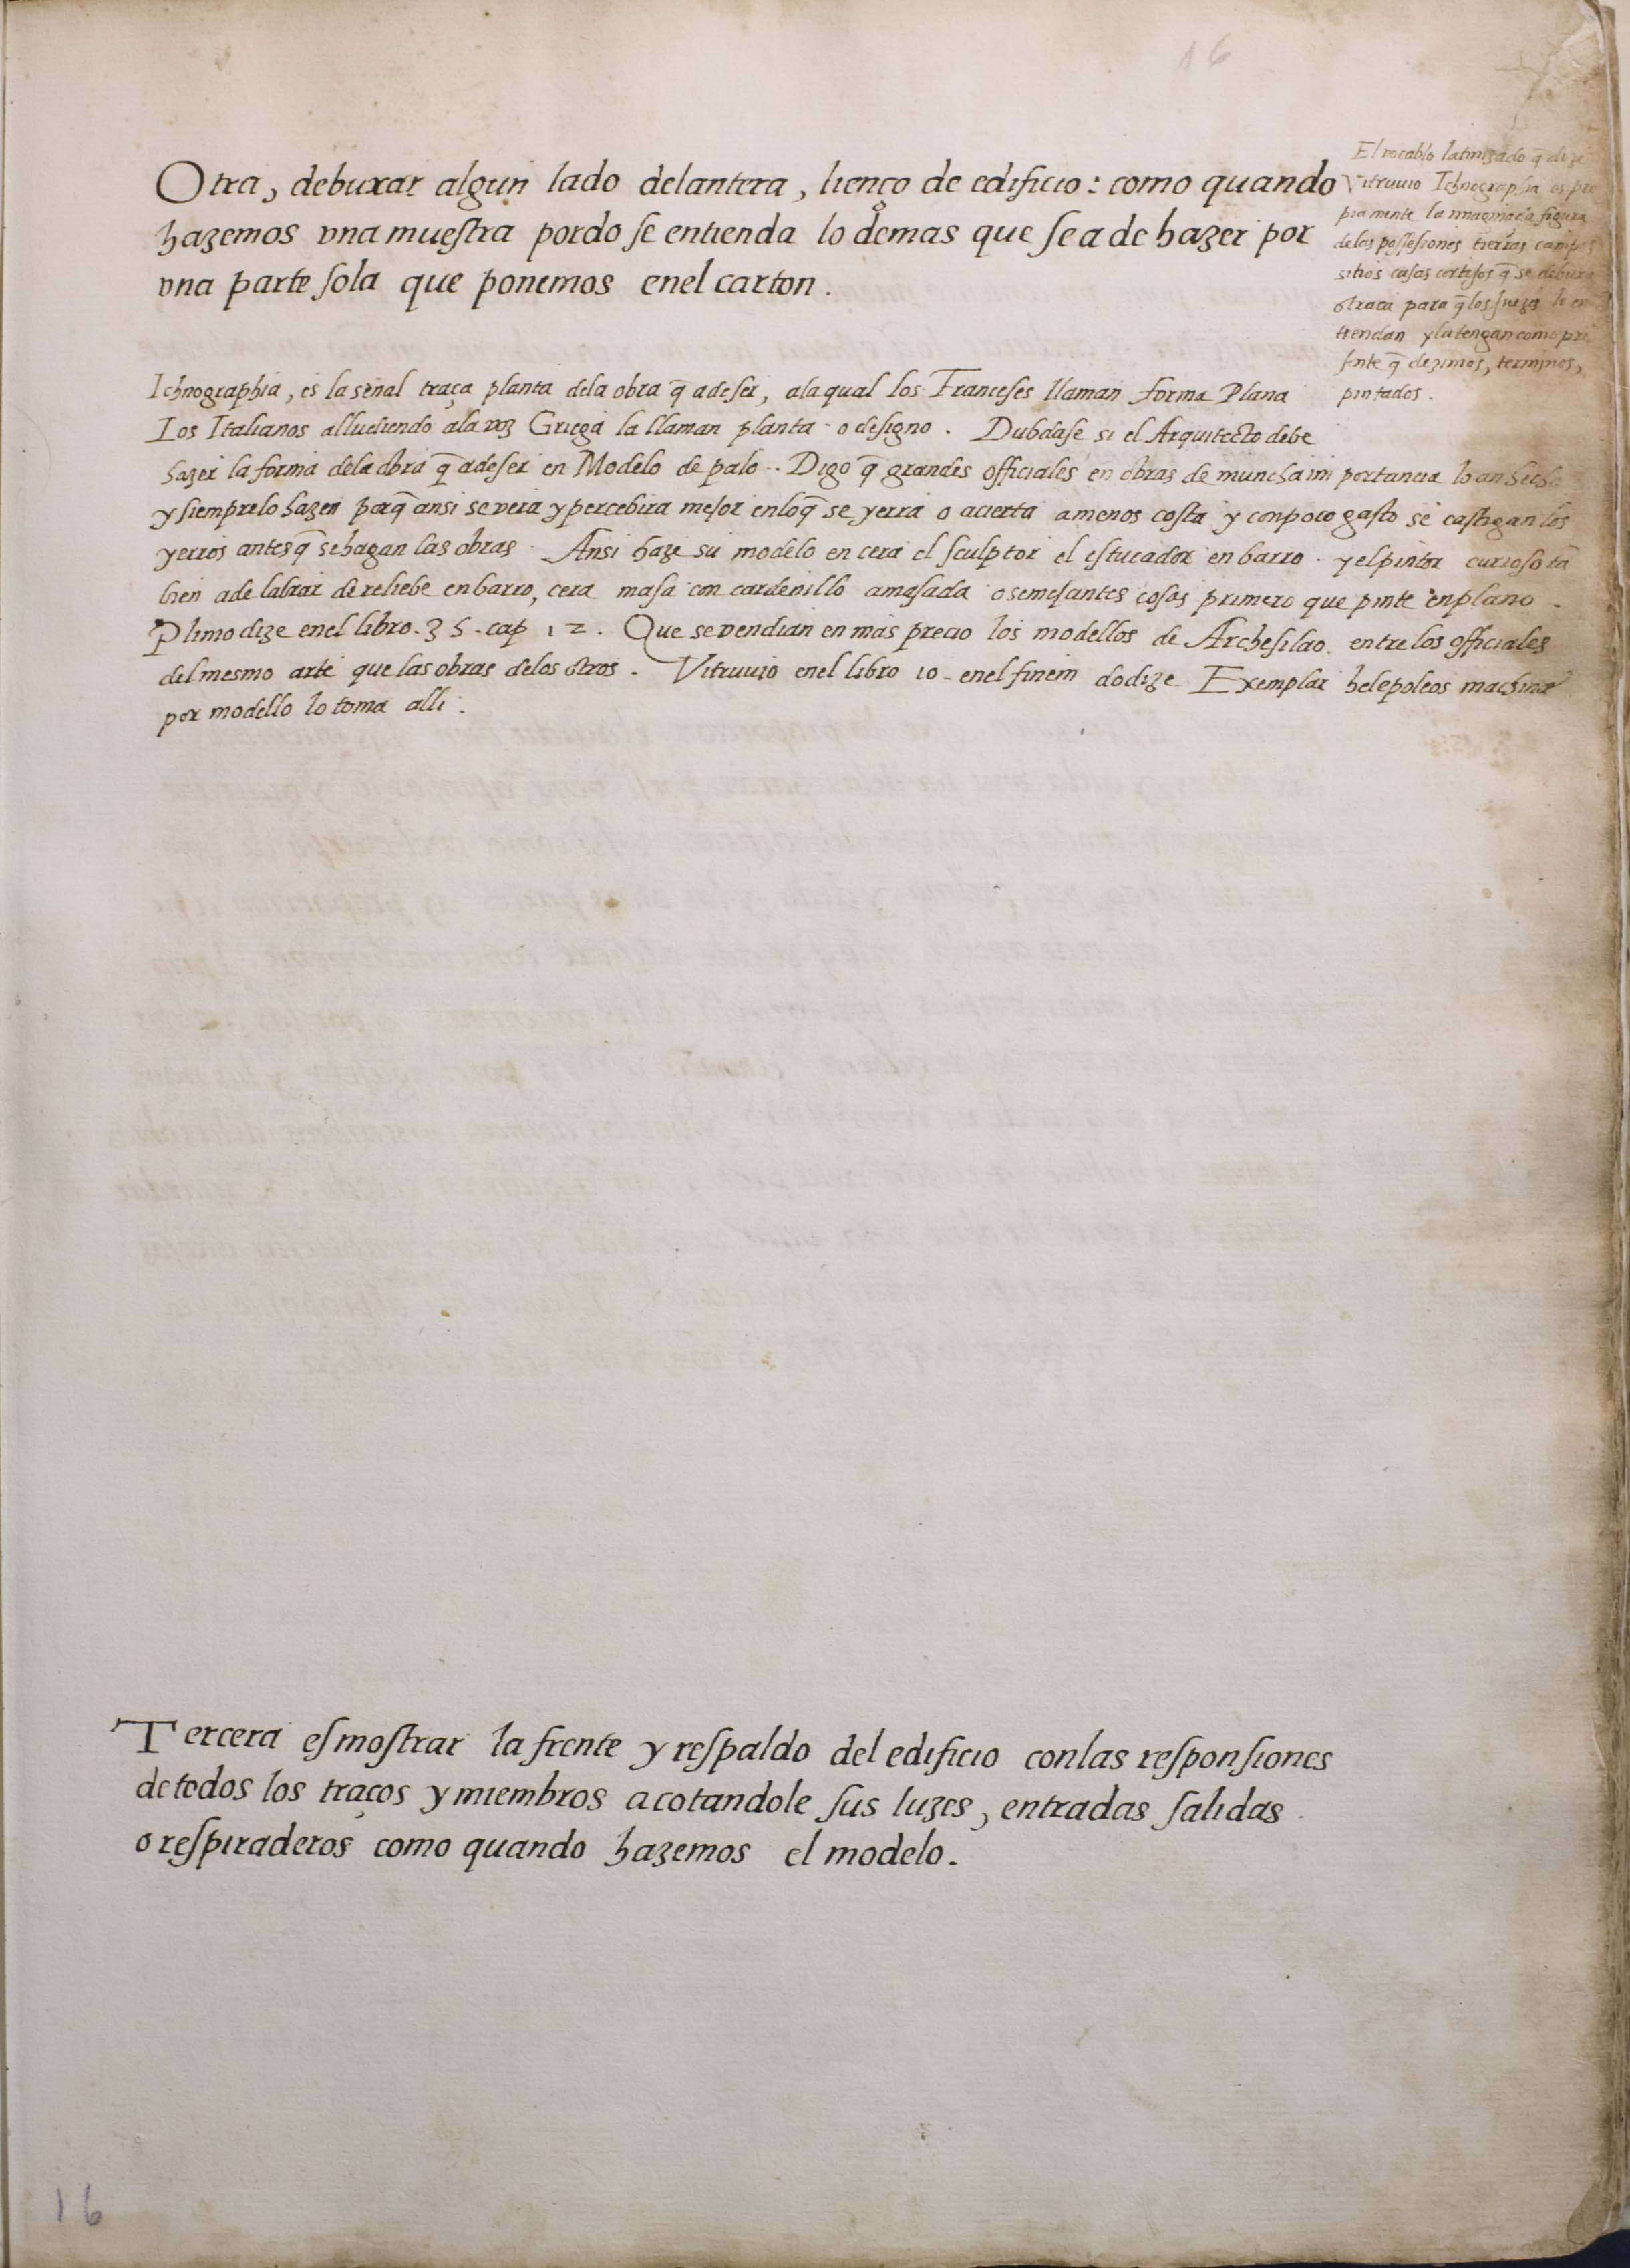 16
Otra, debuxar algun lado delantera, lienço de edificio: como quando
hazemos vna muestra pordo se entienda lo demas que se a de hazer por
vna parte sola que ponemos enel carton.
El vocablo latinizado q̄ dize
Vitruuio Ichnographia es pro
piamente la imaginada figura
delas possesiones tierras campos
sitios casas cortijos q̄ se debuxa
o traça para q̄ los juezes lo en
tiendan y la tengan como pre
sente q̄ dezimos, terminos,
pintados.
Ichnographia, es la señal traça planta dela obra q̄ a de ser, ala qual los Franceses llaman forma Plana
Los Italianos alludiendo ala voz Griega la llaman planta o designo. Dubdase si el Arquitecto debe
hazer la forma dela obra q̄ a de ser en Modelo de palo.. Digo q̄ grandes officiales en obras de muncha im portancia lo an hecho
y siempre lo hazen porq̄ ansi se vera y percebira mejor en loq̄ se yerra o acierta a menos costa y con poco gasto se castigan los
yerros antes q̄ se hagan las obras. Ansi haze su modelo en cera el sculptor el estucador en barro. y el pintor curioso tā
bien a de labrar de reliebe en barro, cera masa con cardenillo amasada o semejantes cosas primero que pinte en plano.
Plinio dize enel libro. 35. cap 12. Que se vendian en mas precio los modellos de Archesilao. entre los officiales
del mesmo arte que las obras delos otros. Vitruuio enel libro 10. enel finem do dize Exemplar helepoleos machinæ
por modello lo toma alli.
Tercera es mostrar la frente y respaldo del edificio con las responsiones
de todos los traços y miembros acotandole sus luzes, entradas salidas
o respiraderos como quando hazemos el modelo.
16